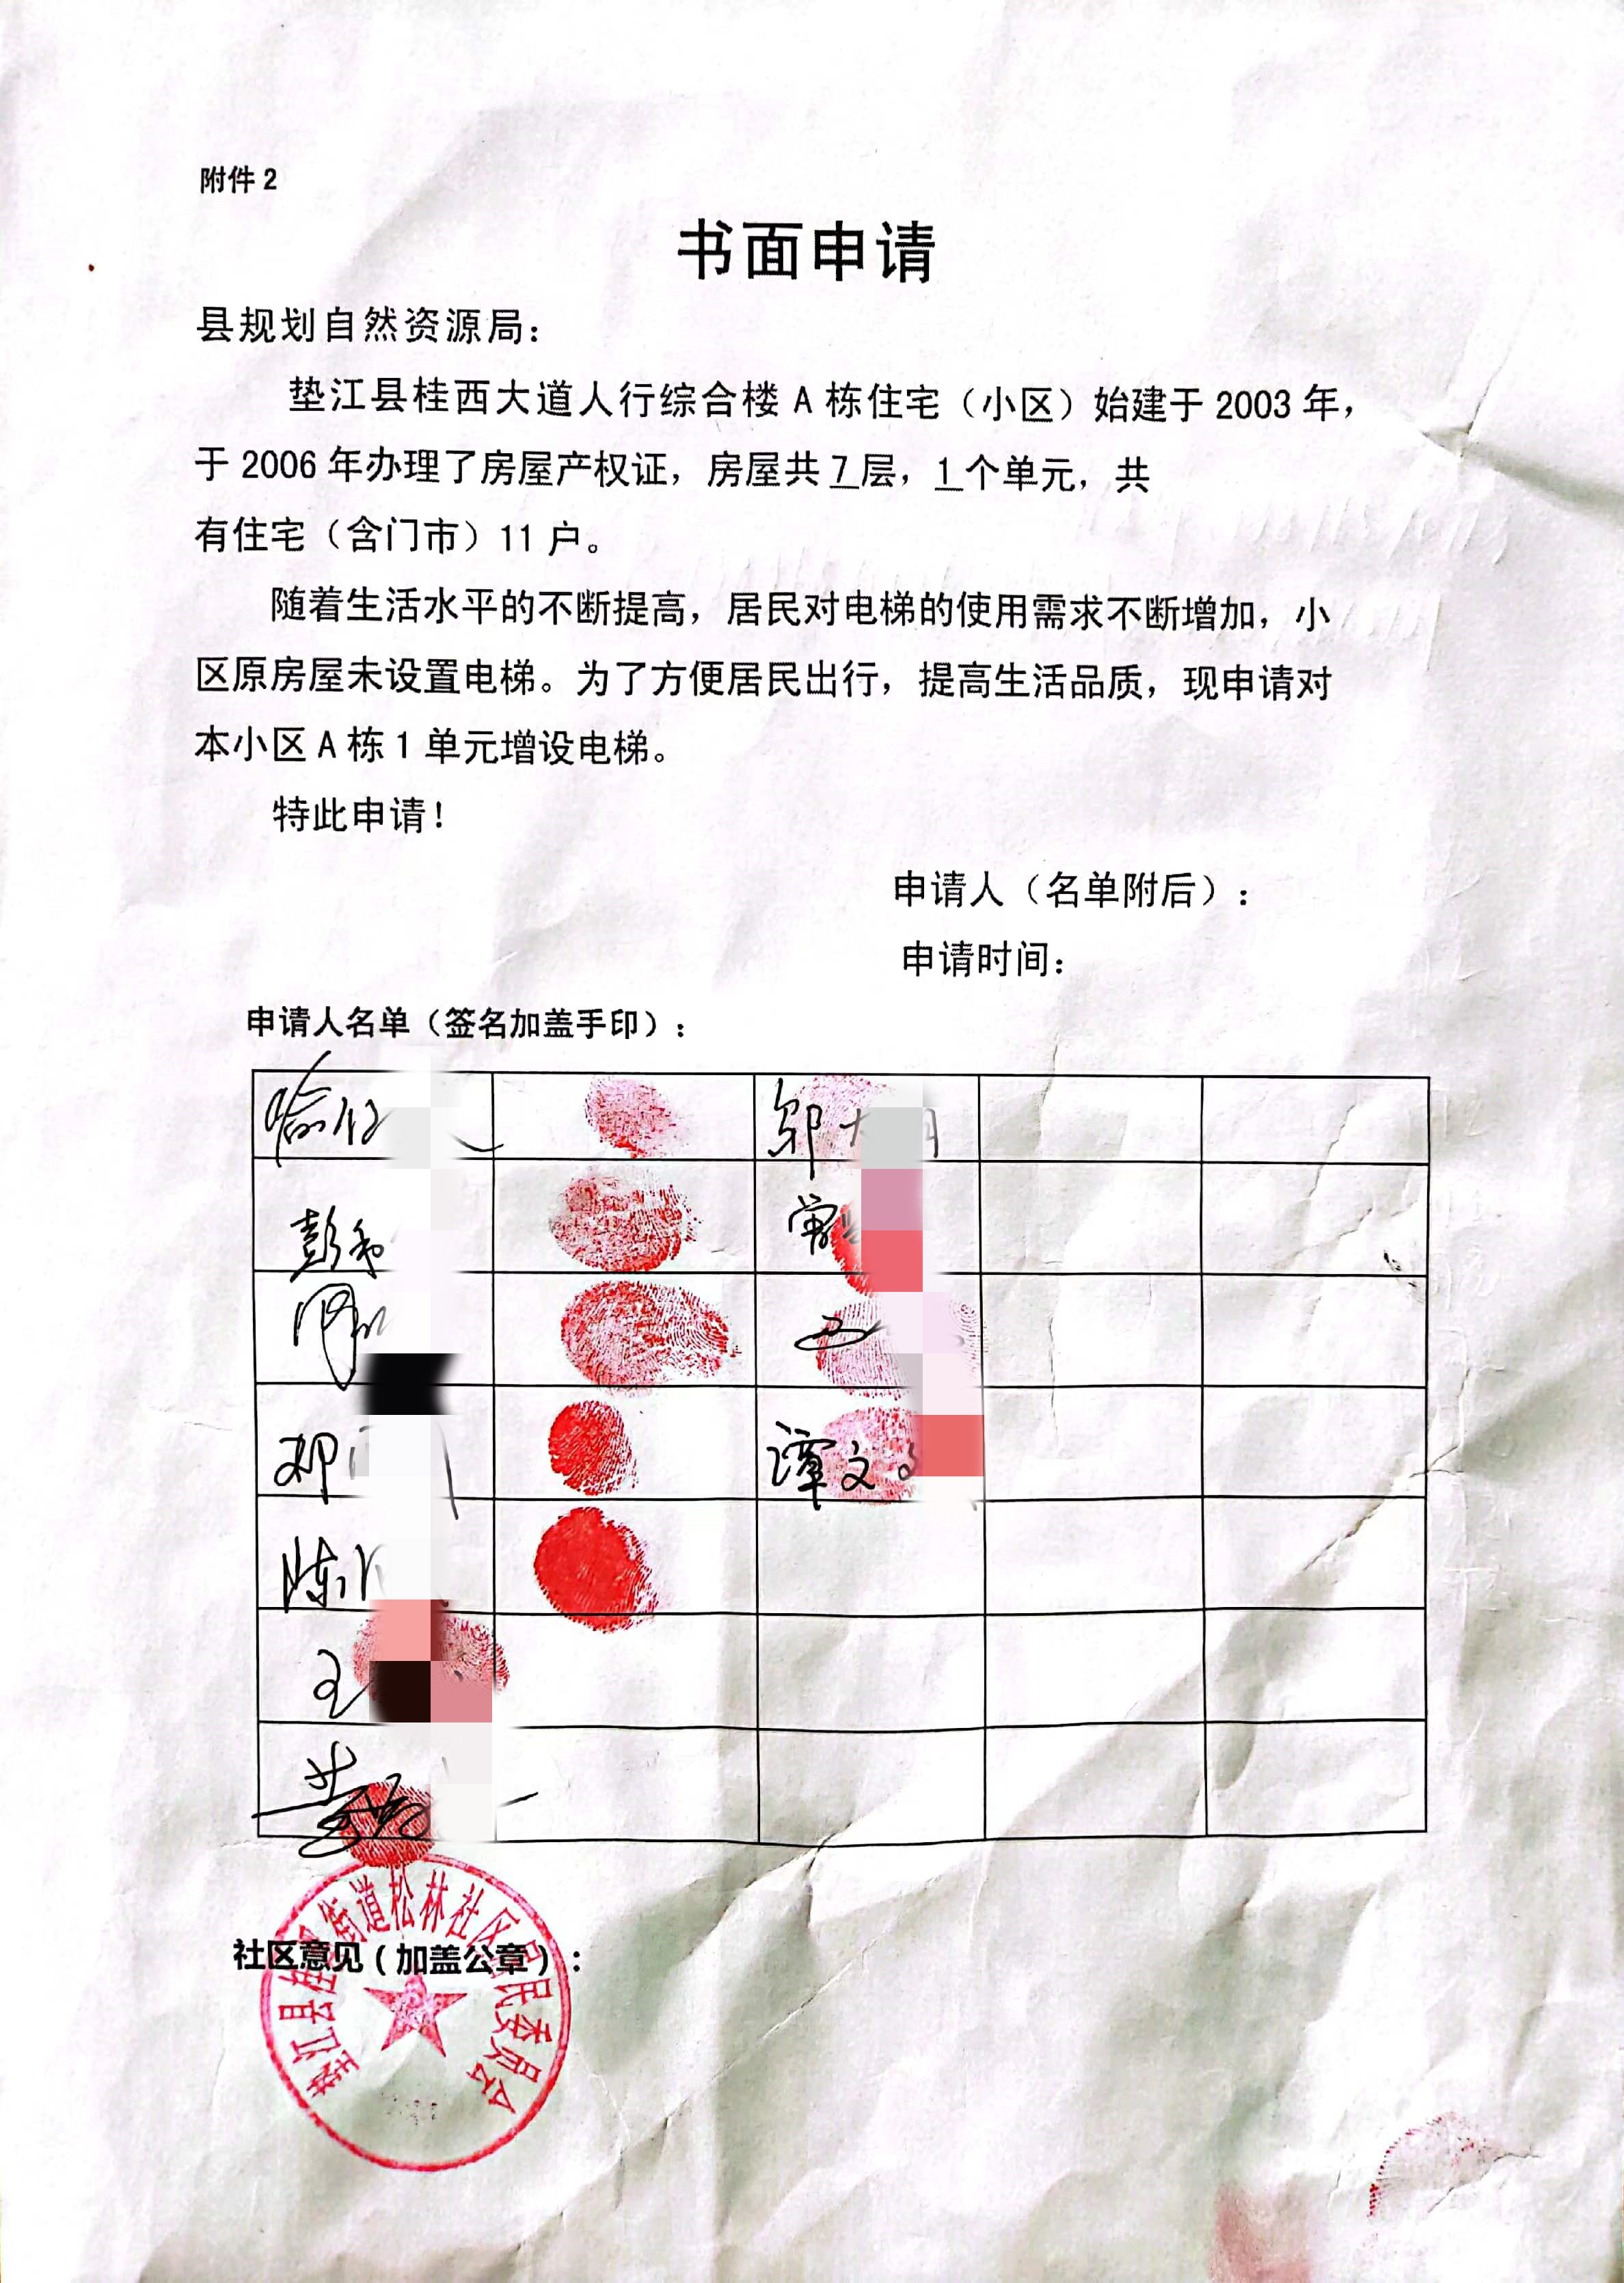 附件 2
书面申请
县规划自然资源局：
垫江县桂西大道人行综合楼 A 栋住宅（小区）始建于 2003 年，
于 2006 年办理了房屋产权证，房屋共 7 层，1 个单元，共
有住宅（含门市）11 户。
随着生活水平的不断提高，居民对电梯的使用需求不断增加，小
区原房屋未设置电梯。为了方便居民出行，提高生活品质，现申请对
本小区 A 栋 1 单元增设电梯。
特此申请！
申请人（名单附后）：
申请时间：
申请人名单（签名加盖手印）：
喻
邬
彭
曾
邓
谭文
陈
王
社区意见（加盖公章）：
垫江县桂溪街道松林社区居民委员会